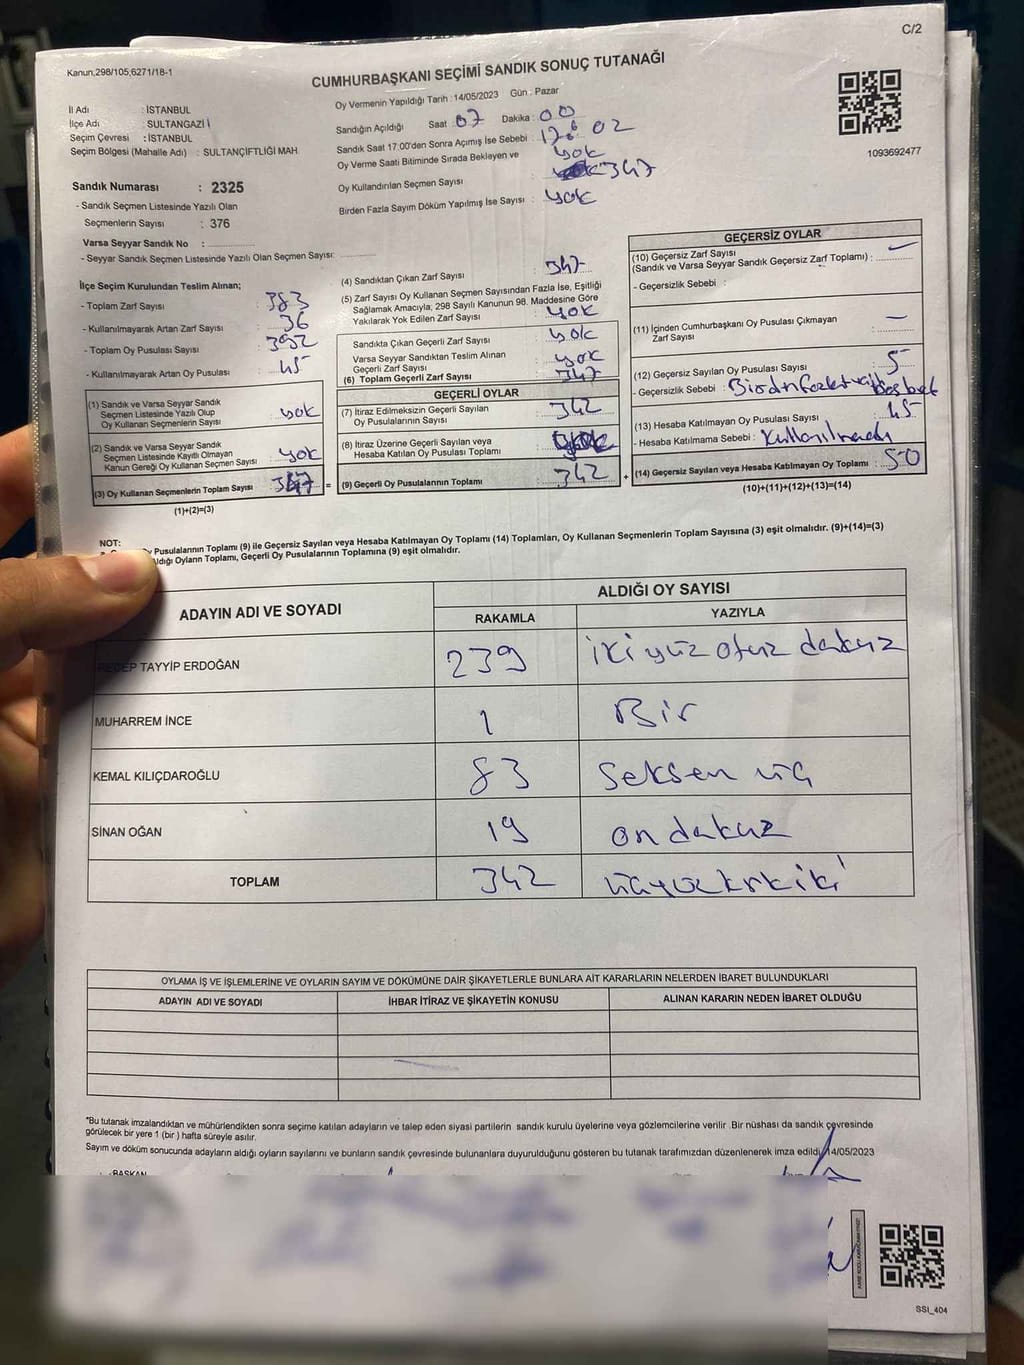 C/2
Kanun,298/105,6271/18-1
CUMHURBAŞKANI SEÇİMİ SANDIK SONUÇ TUTANAĞI
İl Adı : İSTANBUL
İlçe Adı : SULTANGAZİ
Seçim Çevresi : İSTANBUL
Seçim Bölgesi (Mahalle Adı) : SULTANÇİFTLİĞİ MAH.
Oy Vermenin Yapıldığı Tarih :14/05/2023 Gün : Pazar
Sandığın Açıldığı Saat : 07 Dakika : 00
Sandık Saat 17:00'den Sonra Açımış İse Sebebi : 17:02
Oy Verme Saati Bitiminde Sırada Bekleyen ve yok
Oy Kullandırılan Seçmen Sayısı : 347
Birden Fazla Sayım Döküm Yapılmış İse Sayısı : yok
1093692477
Sandık Numarası : 2325
- Sandık Seçmen Listesinde Yazılı Olan
Seçmenlerin Sayısı : 376
Varsa Seyyar Sandık No :
- Seyyar Sandık Seçmen Listesinde Yazılı Olan Seçmen Sayısı:
İlçe Seçim Kurulundan Teslim Alınan;
- Toplam Zarf Sayısı : 383
- Kullanılmayarak Artan Zarf Sayısı : 36
- Toplam Oy Pusulası Sayısı : 392
- Kullanılmayarak Artan Oy Pusulası : 45
(1) Sandık ve Varsa Seyyar Sandık
Seçmen Listesinde Yazılı Olup
Oy Kullanan Seçmenlerin Sayısı : yok
(2) Sandık ve Varsa Seyyar Sandık
Seçmen Listesinde Kayıtlı Olmayan
Kanun Gereği Oy Kullanan Seçmen Sayısı : yok
(3) Oy Kullanan Seçmenlerin Toplam Sayısı : 347 =
(1)+(2)=(3)
(4) Sandıktan Çıkan Zarf Sayısı : 347
(5) Zarf Sayısı Oy Kullanan Seçmen Sayısından Fazla İse, Eşitliği
Sağlamak Amacıyla; 298 Sayılı Kanunun 98. Maddesine Göre
Yakılarak Yok Edilen Zarf Sayısı : yok
Sandıkta Çıkan Geçerli Zarf Sayısı : yok
Varsa Seyyar Sandıktan Teslim Alınan
Geçerli Zarf Sayısı : yok
(6) Toplam Geçerli Zarf Sayısı : 347
GEÇERLİ OYLAR
(7) İtiraz Edilmeksizin Geçerli Sayılan
Oy Pusulalarının Sayısı : 342
(8) İtiraz Üzerine Geçerli Sayılan veya
Hesaba Katılan Oy Pusulası Toplamı :
(9) Geçerli Oy Pusulalarının Toplamı : 342 +
GEÇERSİZ OYLAR
(10) Geçersiz Zarf Sayısı
(Sandık ve Varsa Seyyar Sandık Geçersiz Zarf Toplamı) : —
- Geçersizlik Sebebi :
(11) İçinden Cumhurbaşkanı Oy Pusulası Çıkmayan
Zarf Sayısı : —
(12) Geçersiz Sayılan Oy Pusulası Sayısı : 5
- Geçersizlik Sebebi :
(13) Hesaba Katılmayan Oy Pusulası Sayısı : 45
- Hesaba Katılmama Sebebi : Kullanılmadı
(14) Geçersiz Sayılan veya Hesaba Katılmayan Oy Toplamı : 50
(10)+(11)+(12)+(13)=(14)
NOT:
Pusulalarının Toplamı (9) ile Geçersiz Sayılan veya Hesaba Katılmayan Oy Toplamı (14) Toplamları, Oy Kullanan Seçmenlerin Toplam Sayısına (3) eşit olmalıdır. (9)+(14)=(3)
Oyların Toplamı, Geçerli Oy Pusulalarının Toplamına (9) eşit olmalıdır.
ADAYIN ADI VE SOYADI
ALDIĞI OY SAYISI
RAKAMLA YAZIYLA
RECEP TAYYİP ERDOĞAN 239 iki yüz otuz dokuz
MUHARREM İNCE 1 Bir
KEMAL KILIÇDAROĞLU 83 seksen üç
SİNAN OĞAN 19 on dokuz
TOPLAM 342 üçyüzkırkiki
OYLAMA İŞ VE İŞLEMLERİNE VE OYLARIN SAYIM VE DÖKÜMÜNE DAİR ŞİKAYETLERLE BUNLARA AİT KARARLARIN NELERDEN İBARET BULUNDUKLARI
ADAYIN ADI VE SOYADI İHBAR İTİRAZ VE ŞİKAYETİN KONUSU ALINAN KARARIN NEDEN İBARET OLDUĞU
*Bu tutanak imzalandıktan ve mühürlendikten sonra seçime katılan adayların ve talep eden siyasi partilerin sandık kurulu üyelerine veya gözlemcilerine verilir .Bir nüshası da sandık çevresinde
görülecek bir yere 1 (bir ) hafta süreyle asılır.
Sayım ve döküm sonucunda adayların aldığı oyların sayılarını ve bunların sandık çevresinde bulunanlara duyurulduğunu gösteren bu tutanak tarafımızdan düzenlenerek imza edildi. 14/05/2023
BAŞKAN
SSI_404